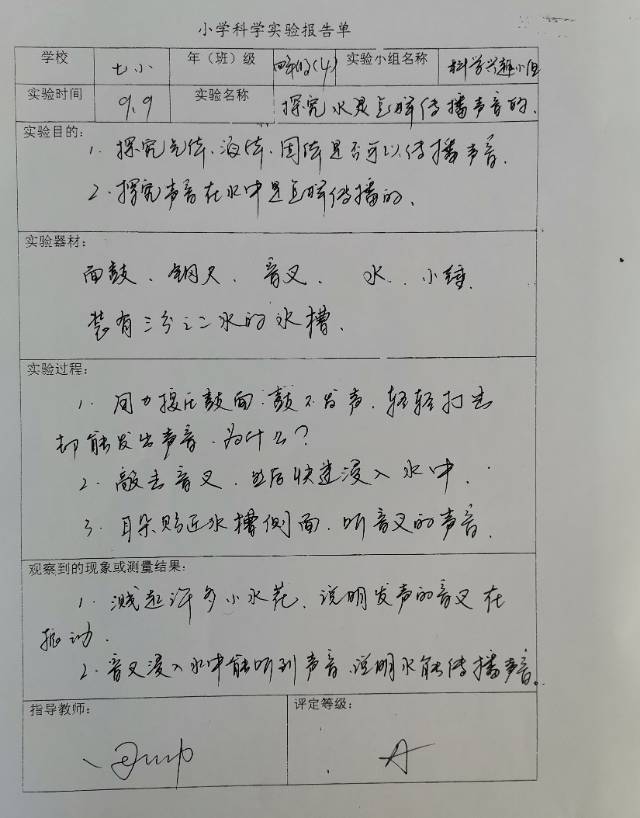 小学科学实验报告单
学校 七小 年（班）级 四年级(4) 实验小组名称 科学兴趣小组
实验时间 9.9 实验名称 探究水是怎样传播声音的.
实验目的：
1. 探究气体、液体、固体是否可以传播声音.
2. 探究声音在水中是怎样传播的.
实验器材：
面鼓、钢尺、音叉、水、小锤
装有三分之二水的水槽.
实验过程：
1. 用力按压鼓面.鼓不发声，轻轻打击
却能发出声音.为什么？
2. 敲击音叉，然后快速浸入水中.
3. 耳朵贴近水槽侧面，听音叉的声音.
观察到的现象或测量结果：
1. 溅起许多小水花，说明发声的音叉在
振动.
2. 音叉浸入水中能听到声音，说明水能传播声音。
指导教师： 评定等级：
A